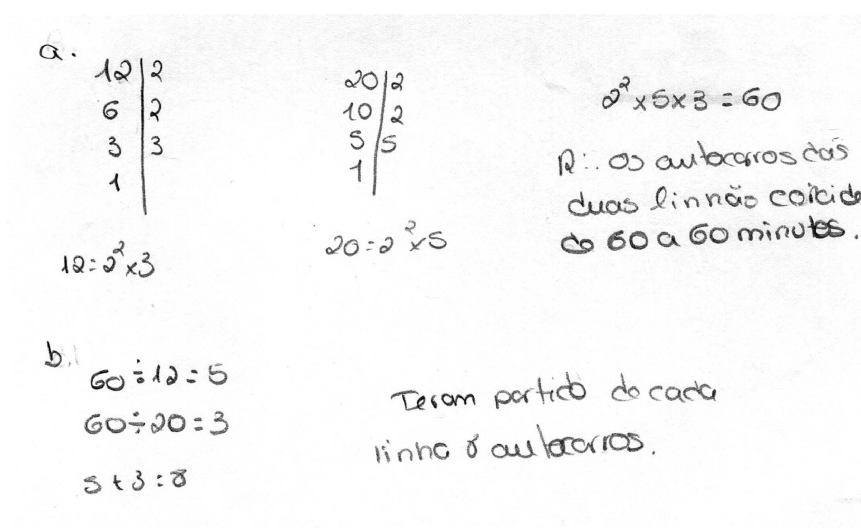 a.
12|2
6|2
3|3
1|
12=2²x3
20|2
10|2
5|5
1|
20=2²x5
2²x5x3=60
R:. os autocarros das
duas linnão coicide
do 60 a 60 minutos.
b.
60÷12=5
60÷20=3
5+3=8
Teram partido de cada
linha 8 autocarros.